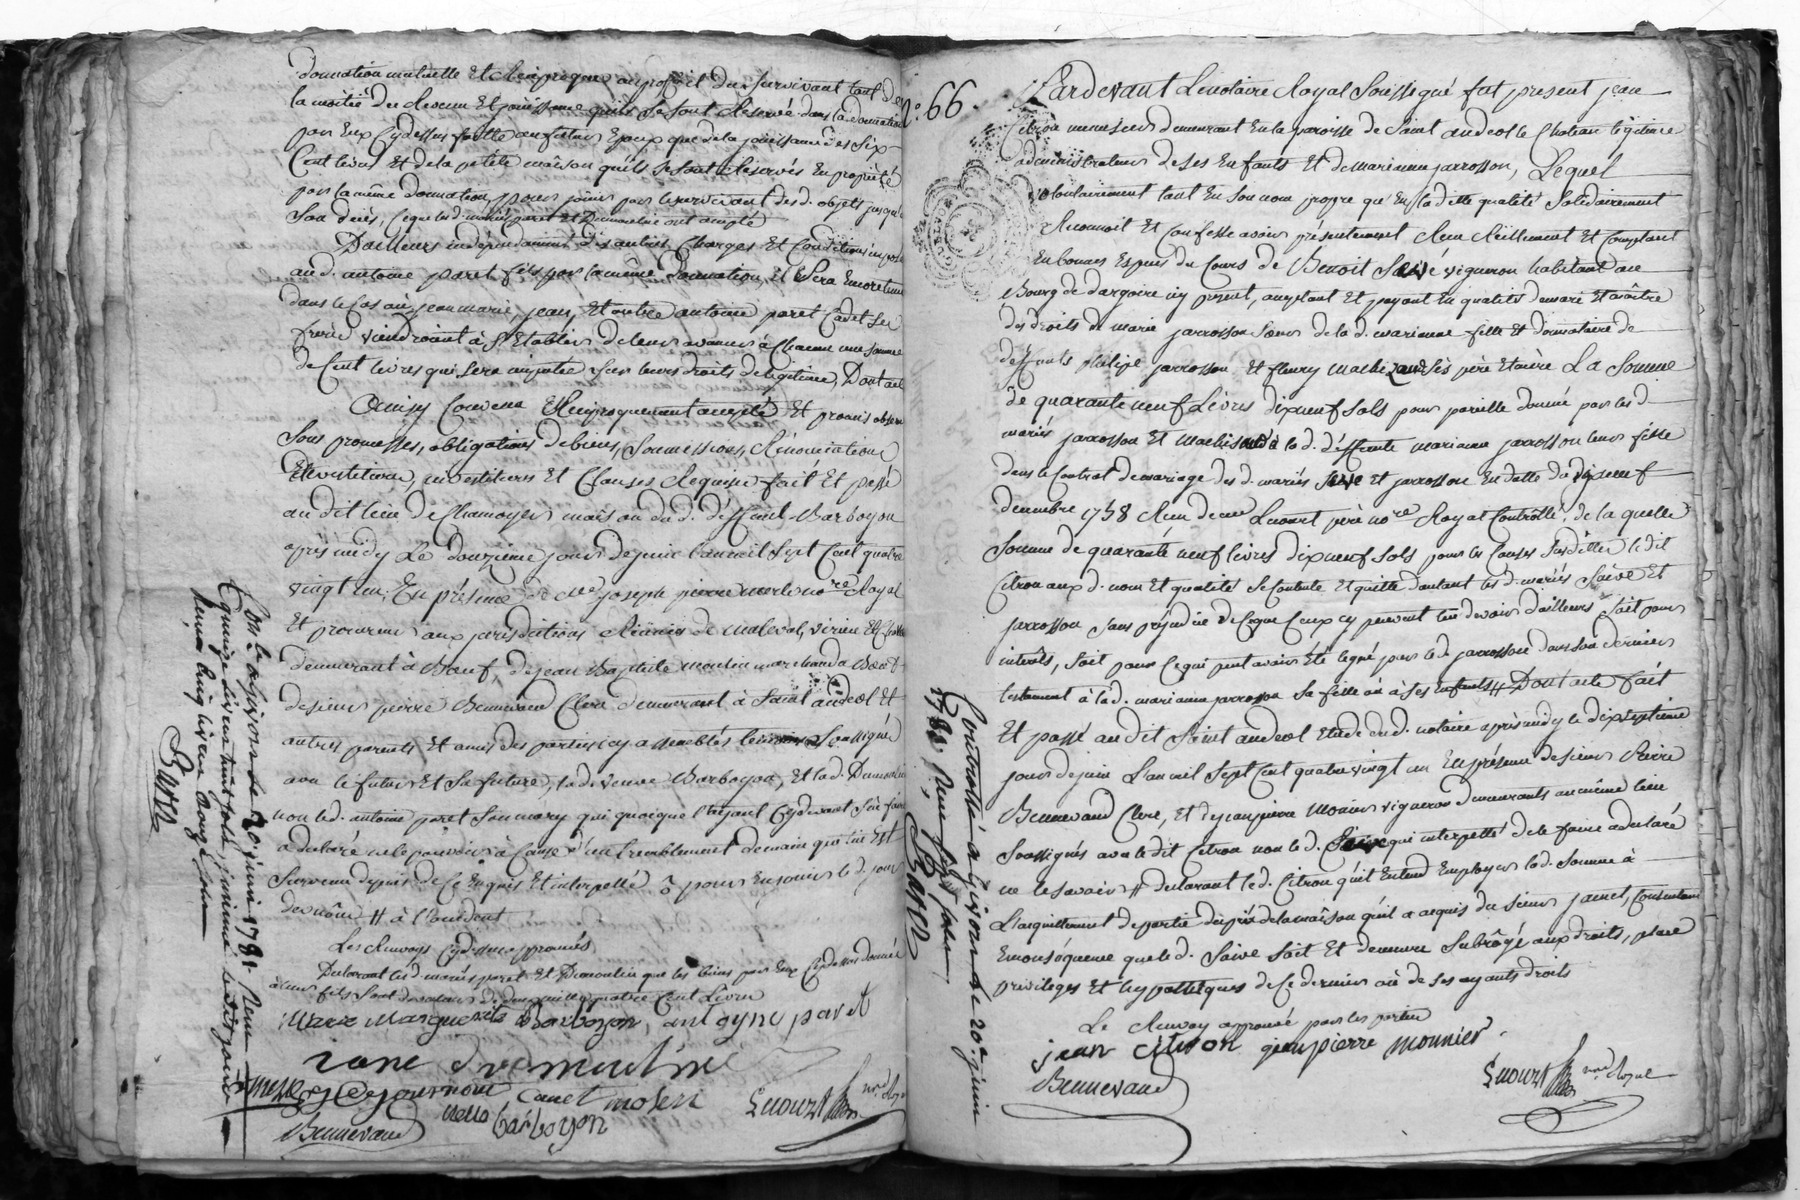 donnation mutuelle Et Reciproque au proffit du Survivant tant de
la moitié du Revenu Et jouissance qu'ils Se sont Reservé dans la donnation
par Eux Cydessus faitte au futur Epoux que de la jouissance des Six
Cent livres Et de la petite maison qu'ils Se sont Reservés En proprieté
par la même donnation, pour jouir par le survivant des d. objets jusqu'à
Son deces, Ce que les d. mariés paret Et Dumoulin ont accepté
D'ailleurs indépendamment des autres Charges Et Conditions imposé
au d. antoine paret fils par la même donnation, il Sera Encore tenu
dans le Cas où jean marie, jean, Et autre antoine paret Cadet Ses
freres viendroient à S'Etablir de leur avancer à Chacun une somme
de Cent livres qui Sera imputée Sur leurs droits de legitime, Dont acte
Ainsy Convenu Et Reciproquement accepté Et promis observer
Sous promesses, obligations de biens, Soumissions, Rénonciations
Et Clauses Requises fait Et passé
au dit lieu de Chamoyer maison du d. deffunt Barboyon
après midy Le douzieme jour de juin l'an mil Sept Cent quatre
vingt un; En présence de Me joseph pierre merle nore Royal
Et procureur aux jurisdictions Réunies de malleval, virieu Et Chav
demeurant à Boeuf, de jean Baptiste moulin marchand à Boeuf
de sieur pierre Bennevaud Clerc demeurant à Saint andeol Et
autres parents Et amis des parties icy assemblés temoins Soussignés
avec le futur Et La future, la d. veuve Barboyon, Et la d. Dumoulin
non le d. antoine paret Son mary qui quoique l'ayant Cydevant Sçu faire
a declaré ne le pouvoir à Cause d'un tremblement de main qui lui Est
Survenu depuis de Ce Enquis Et interpellé
Les Renvoys Cydessus approuvés
Declarant les d. mariés paret Et Dumoulin que les biens par Eux Cydessus donnés
à leur fils Sont de valeur de deux mille quatre Cent Livres
Marie Marguerite Barboyon, antoyne paret
jane dumouline
Merle Dejournoud Canet molin
Barboyon
Bennevaud
Enouzt nore Royal
Con.lé à givors le 20 juin 1781. Reçu
quinze livres huit sols, insinué Led. jour
Reçu Cinq livres onze sols
N.o 66
Pardevant Le notaire Royal Soussigné fut present jean
Citron menusier demeurant En la paroisse de Saint andeol le Chateau legitime
administrateur de Ses Enfants Et de marianne jarrosson, Lequel
volontairement tant En Son nom propre qu'En la ditte qualité Solidairement
Reconnoit Et Confesse avoir présentement Reçu Réellement Et Comptant
En bonnes Especes du Cours de Benoit Saive vigneron habitant au
Bourg de dargoire icy present, acceptant Et payant En qualité de mari Et maître
des droits de marie jarrosson Soeur de la d. marianne fille Et donnataire de
deffunts philipe jarrosson Et fleury machizaud Ses père Et mère La Somme
de quarante neuf Livres dixneuf Sols pour pareille donnée par les d.
mariés jarrosson Et machisaud à la d. deffunte marianne jarrosson leur fille
dans le Contrat de mariage des d. mariés Saive Et jarrosson En datte du dixneuf
decembre 1758 Reçu de me Enouzt père nore Royal Controllé, de la quelle
Somme de quarante neuf livres dixneuf Sols pour les Causes Susdittes le dit
Citron aux d. nom Et qualité Se Contente Et quitte d'autant les d. mariés Saive Et
jarrosson Sans préjudice de Ce que Ceux cy peuvent lui devoir d'ailleurs Soit pour
interêts, Soit pour Ce qui peut avoir Eté legué par le d. jarrosson dans Son dernier
testament à la d. marianne jarrosson Sa fille où à Ses Enfants // Dont acte fait
Et passé au dit Saint andeol Etude du d. notaire après midy le dixseptieme
jour de juin L'an mil Sept Cent quatre vingt un En présence de sieur Pierre
Bennevaud Clerc, Et de jean pierre Monier vigneron demeurants au même lieu
Soussignés avec le dit Citron non le d. Saive qui interpellé de le faire a declaré
ne le savoir // declarant le d. Citron qu'il Entend Employer la d. Somme à
L'acquittement de partie du prix de la maison qu'il a acquis du sieur jamet, Consentant
En conséquence que le d. Saive Soit Et demeure Subrogé aux droits, place
privileges Et hypothéques de Ce dernier où de Ses ayants droits
Le Renvoy approuvé par les parties
jean citron jean pierre monnier
Bennevaud
Enouzt nore Royal
Controllé à givors le 20e juin
1781, Reçu